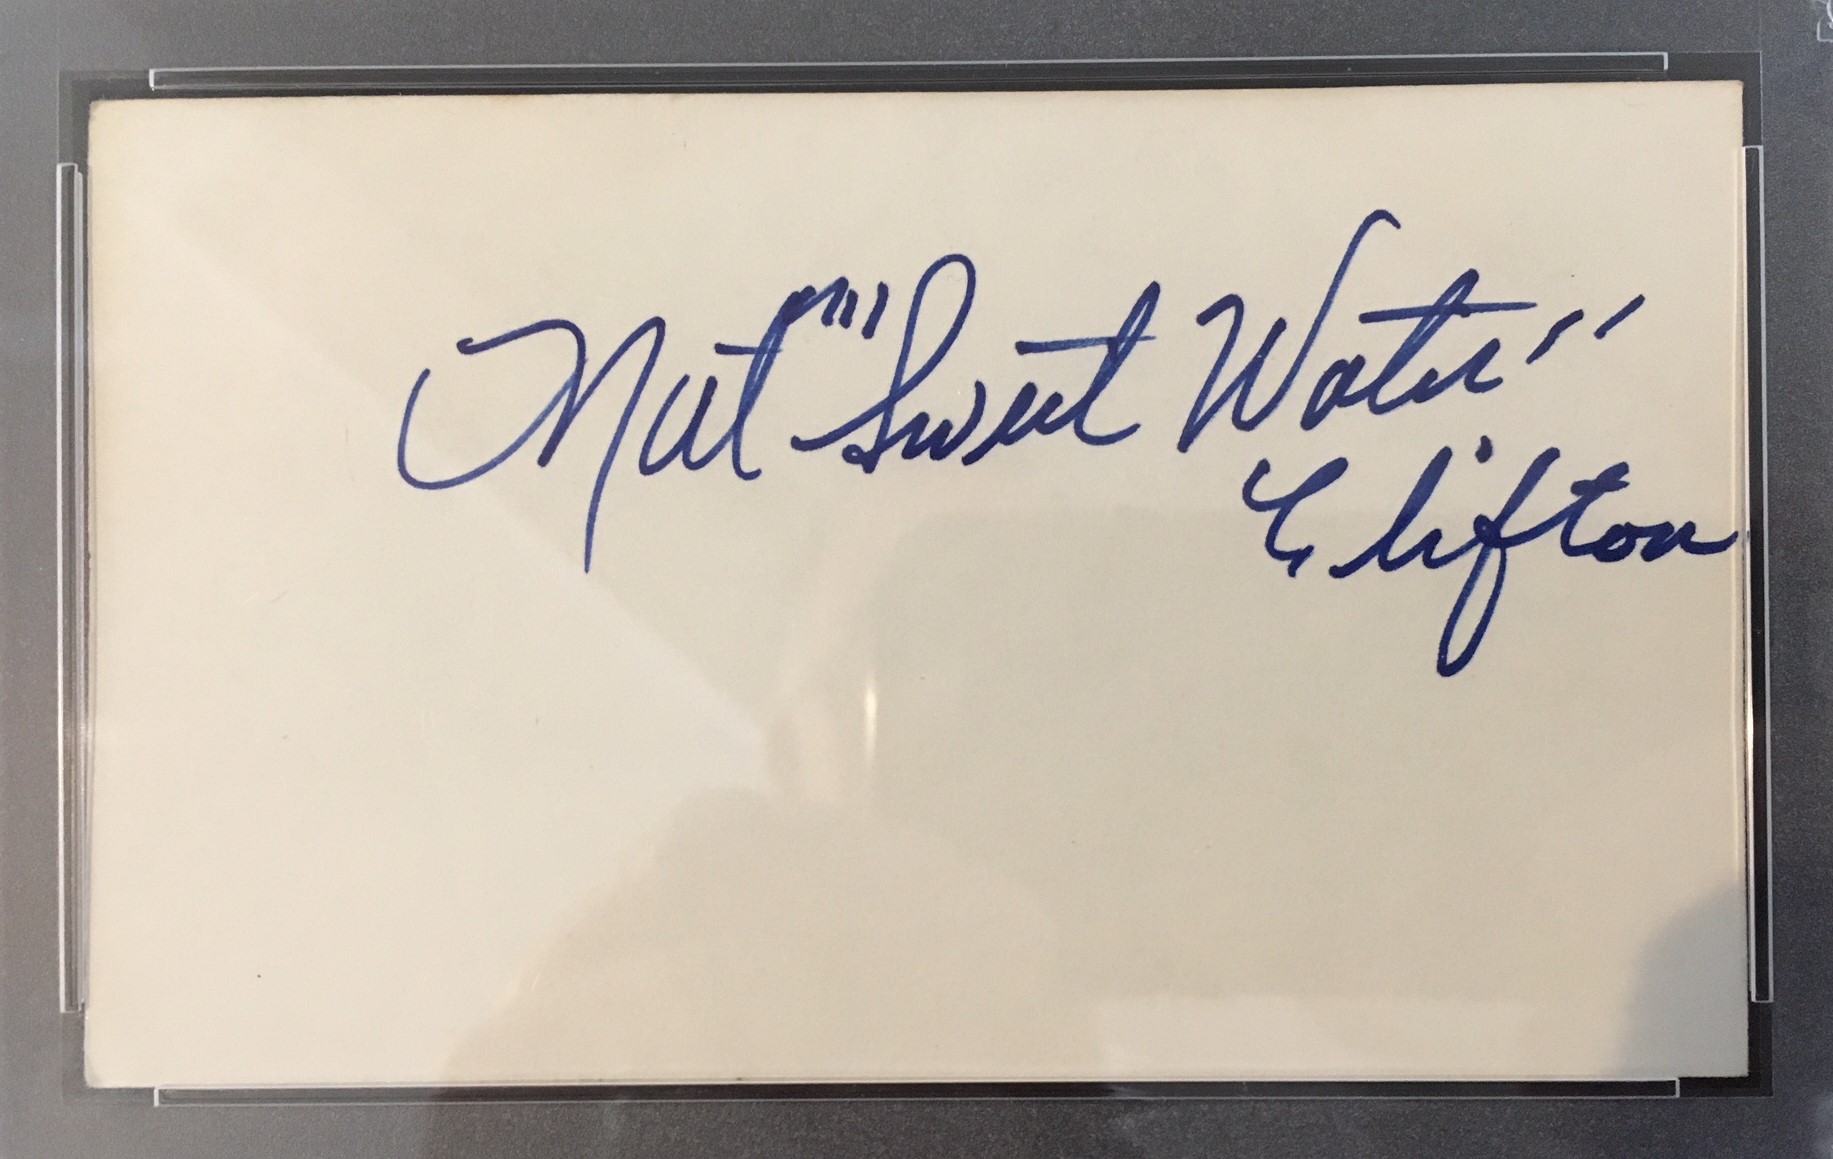 Nat "Sweet Water"
Clifton